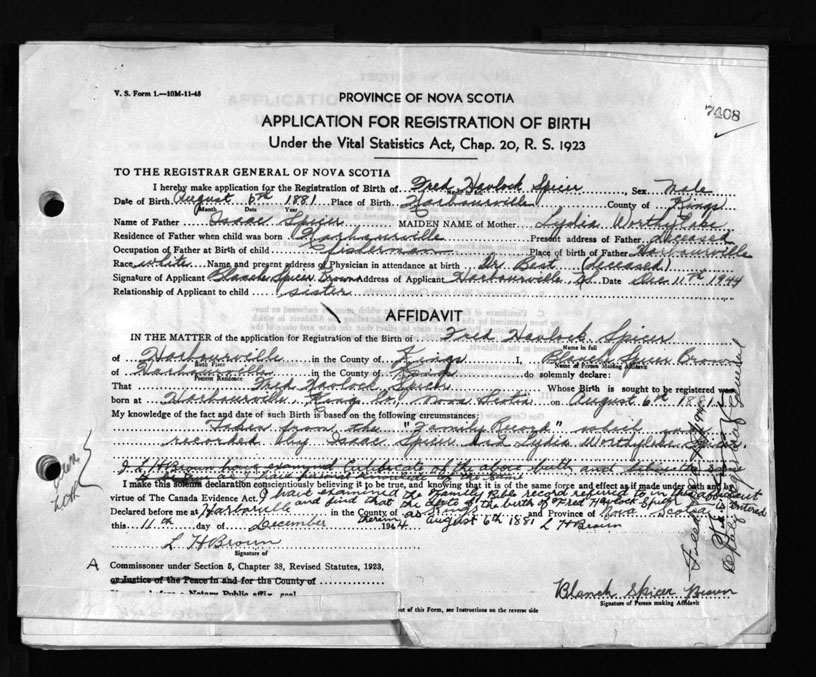 V. S. Form 1.—10M-11-43
PROVINCE OF NOVA SCOTIA
7408
APPLICATION FOR REGISTRATION OF BIRTH
Under the Vital Statistics Act, Chap. 20, R. S. 1923
TO THE REGISTRAR GENERAL OF NOVA SCOTIA
I hereby make application for the Registration of Birth of Fred Havlock Spicer, Sex Male
Name in full
Date of Birth August 6th 1881 Place of Birth Harbourville County of Kings
Month Date Year
Name of Father Isaac Spicer MAIDEN NAME of Mother Lydia Worthylake
Residence of Father when child was born Harbourville Present address of Father Deceased
Occupation of Father at Birth of child Fisherman Place of birth of Father Harbourville
Race white Name and present address of Physician in attendance at birth Dr. Best (deceased)
Signature of Applicant Blanch Spicer Brown Address of Applicant Harbourville, Date Dec. 11th 1944
Relationship of Applicant to child sister
AFFIDAVIT
IN THE MATTER of the application for Registration of the Birth of Fred Havlock Spicer
Name in full
of Harbourville in the County of Kings I, Blanche Spicer Brown
Birth Place Name of Person Making Affidavit
of Harbourville in the County of Kings do solemnly declare:
Present Residence
That Fred Havlock Spicer Whose Birth is sought to be registered was
born at Harbourville, Kings Co, Nova Scotia on August 6th 1881
My knowledge of the fact and date of such Birth is based on the following circumstances:
Taken from the "Family Record" which was
recorded by Isaac Spicer and Lydia Worthylake Spicer.
I L H Brown have examined Certificate of the above birth and
I make this solemn declaration conscientiously believing it to be true, and knowing that it is of the same force and effect as if made under oath and by
virtue of The Canada Evidence Act. I have examined the Family Bible record referred to in this affidavit
and find that the date of the birth of Fred Havlock Spicer is entered
Declared before me at Harborville in the County of Kings and Province of Nova Scotia
therein as August 6th 1881 L H Brown
this 11th day of December 1944.
L H Brown
Signature of
A Commissoner under Section 5, Chapter 38, Revised Statutes, 1923,
or Justice of the Peace in and for the County of
Notary Public affix seal
Blanch Spicer Brown
Signature of Person making Affidavit
out of this Form, see Instructions on the reverse side